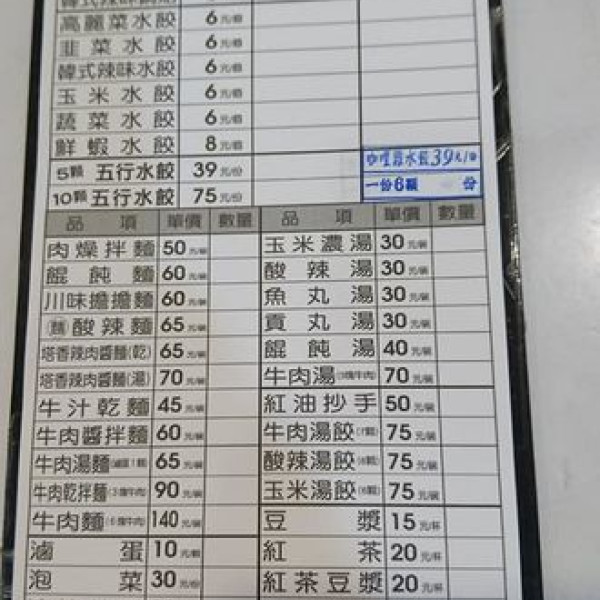 高麗菜水餃 6 元/個
韭菜水餃 6 元/個
韓式辣味水餃 6 元/個
玉米水餃 6 元/個
蔬菜水餃 6 元/個
鮮蝦水餃 8 元/個
5顆 五行水餃 39 元/份
10顆 五行水餃 75 元/份
39元/份
一份6顆 份
品項 單價 數量 品項 單價 數量
肉燥拌麵 50 元/碗 玉米濃湯 30 元/碗
餛飩麵 60 元/碗 酸辣湯 30 元/碗
川味擔擔麵 60 元/碗 魚丸湯 30 元/碗
酸辣麵 65 元/碗 貢丸湯 30 元/碗
塔香辣肉醬麵(乾) 65 元/碗 餛飩湯 40 元/碗
塔香辣肉醬麵(湯) 70 元/碗 牛肉湯(3塊牛肉) 70 元/碗
牛汁乾麵 45 元/碗 紅油抄手 50 元/碗
牛肉醬拌麵 60 元/碗 牛肉湯餃(7顆) 75 元/碗
牛肉湯麵 65 元/碗 酸辣湯餃 75 元/碗
牛肉乾拌麵(3塊牛肉) 90 元/碗 玉米湯餃 75 元/碗
牛肉麵(6塊牛肉) 140 元/碗 豆漿 15 元/杯
滷蛋 10 元/個 紅茶 20 元/杯
泡菜 30 元/份 紅茶豆漿 20 元/杯